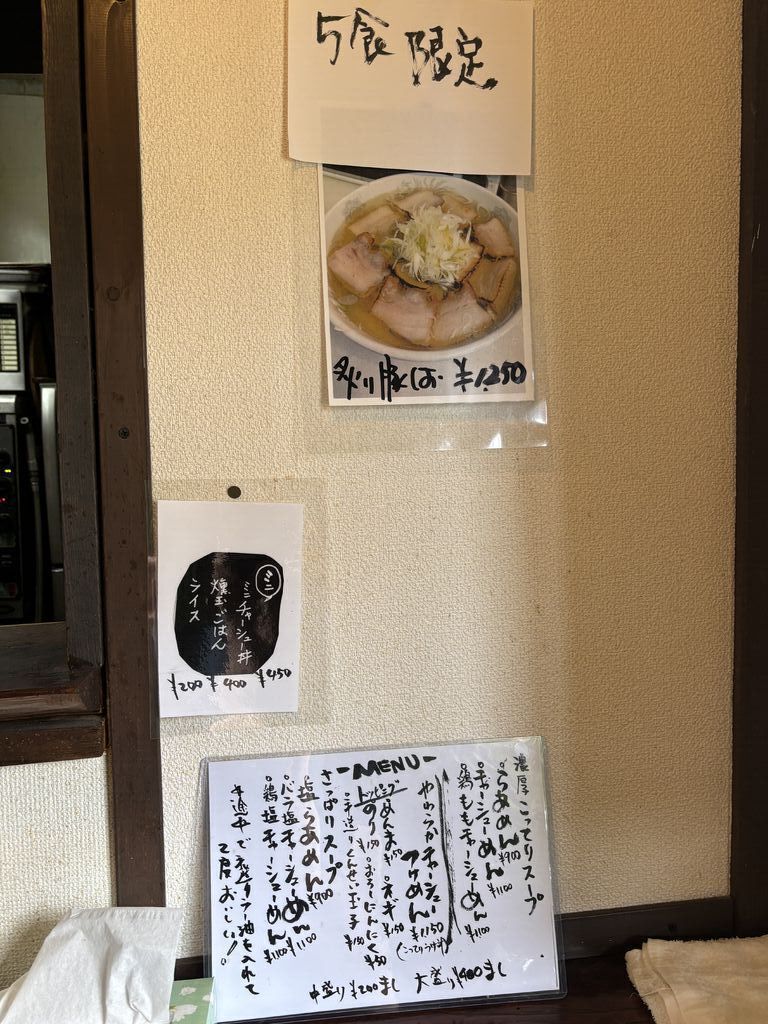 5食限定
炙り豚しお ¥1,250
ミニ
ミニチャーシュー丼 ¥450
燻玉ごはん ¥400
ライス ¥200
-MENU-
濃厚こってりスープ
。らあめん ¥900
。チャーシューめん ¥1100
。鶏ももチャーシューめん ¥1100
やわらかチャーシュー
つけめん ¥1150
(こってりつけ汁)
トッピング
めんま ¥150 。ネギ ¥150
のり ¥150 。おろしにんにく ¥50
。手造りくんせい玉子 ¥150
さっぱりスープ
。塩らあめん ¥900
。バラ塩チャーシューめん ¥1100
。鶏塩チャーシューめん ¥1100
*途中で
ラー油を入れて
2度おいしい!
中盛り ¥200まし 大盛り ¥400まし